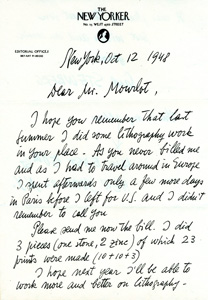 THE
NEW YORKER
No. 25 WEST 43RD STREET
EDITORIAL OFFICES
New York, Oct 12 1948
Dear Mr. Mourlot,
I hope you remember that last
summer I did some lithography work
in your place. As you never billed me
and as I had to travel around in Europe
I spent afterwards only a few more days
in Paris before I left for U.S. and I didn't
remember to call you
Please send me now the bill. I did
3 pieces (one stone, 2 zinc) of which 23
prints were made (10+10+3)
I hope next year I'll be able to
work more and better on lithography.-